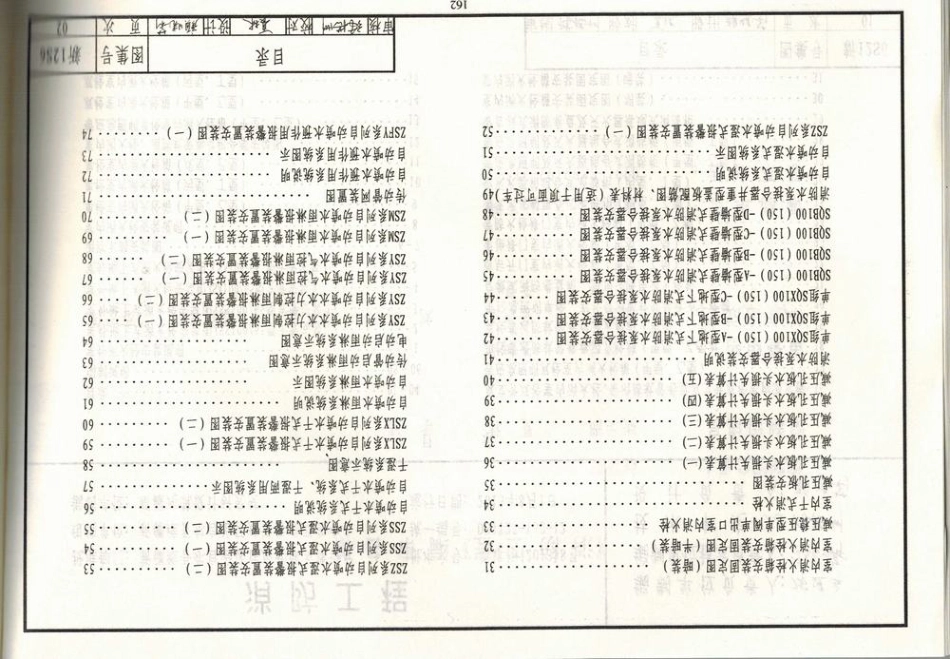 室内消火栓箱安装固定图(暗装)················31
室内消火栓箱安装固定图(半暗装)················32
减压稳压型单阀单出口室内消火栓················33
室内干式消火栓················34
减压孔板安装图················35
减压孔板水头损失计算表(一)················36
减压孔板水头损失计算表(二)················37
减压孔板水头损失计算表(三)················38
减压孔板水头损失计算表(四)················39
减压孔板水头损失计算表(五)················40
消防水系接合器安装说明················41
单组SQX100(150)-A型地下式消防水系接合器安装图····42
单组SQX100(150)-B型地下式消防水系接合器安装图····43
单组SQX100(150)-C型地下式消防水系接合器安装图····44
SQB100(150)-A型墙壁式消防水系接合器安装图········45
SQB100(150)-B型墙壁式消防水系接合器安装图········46
SQB100(150)-C型墙壁式消防水系接合器安装图········47
SQB100(150)-D型墙壁式消防水系接合器安装图········48
消防水系接合器井重型盖板配筋图、材料表(适用于顶面可过车)49
自动喷水湿式系统说明················50
自动喷水湿式系统图示················51
ZSZ系列自动喷水湿式报警装置安装图(一)············52
ZSZ系列自动喷水湿式报警装置安装图(二)········53
ZSS系列自动喷水湿式报警装置安装图(一)········54
ZSS系列自动喷水湿式报警装置安装图(二)········55
自动喷水干式系统说明················56
自动喷水干式系统、干湿两用系统图示············57
干湿系统示意图················58
ZSLX系列自动喷水干式报警装置安装图(一)········59
ZSLX系列自动喷水干式报警装置安装图(二)········60
自动喷水雨淋系统说明················61
自动喷水雨淋系统图示················62
传动管启动雨淋系统示意图················63
电动启动雨淋系统示意图················64
ZSYS系列自动喷水水力控制雨淋报警装置安装图(一)····65
ZSYS系列自动喷水水力控制雨淋报警装置安装图(二)····66
ZSYS系列自动喷水气控雨淋报警装置安装图(一)······67
ZSYS系列自动喷水气控雨淋报警装置安装图(二)······68
ZSMS系列自动喷水雨淋报警装置安装图(一)········69
ZSMS系列自动喷水雨淋报警装置安装图(二)········70
传动管网装置图················71
自动喷水预作用系统说明················72
自动喷水预作用系统图示················73
ZSFY系列自动喷水预作用报警装置安装图(一)········74
目录
图集号
新12S6
审核
校对
设计
页 次
02
162